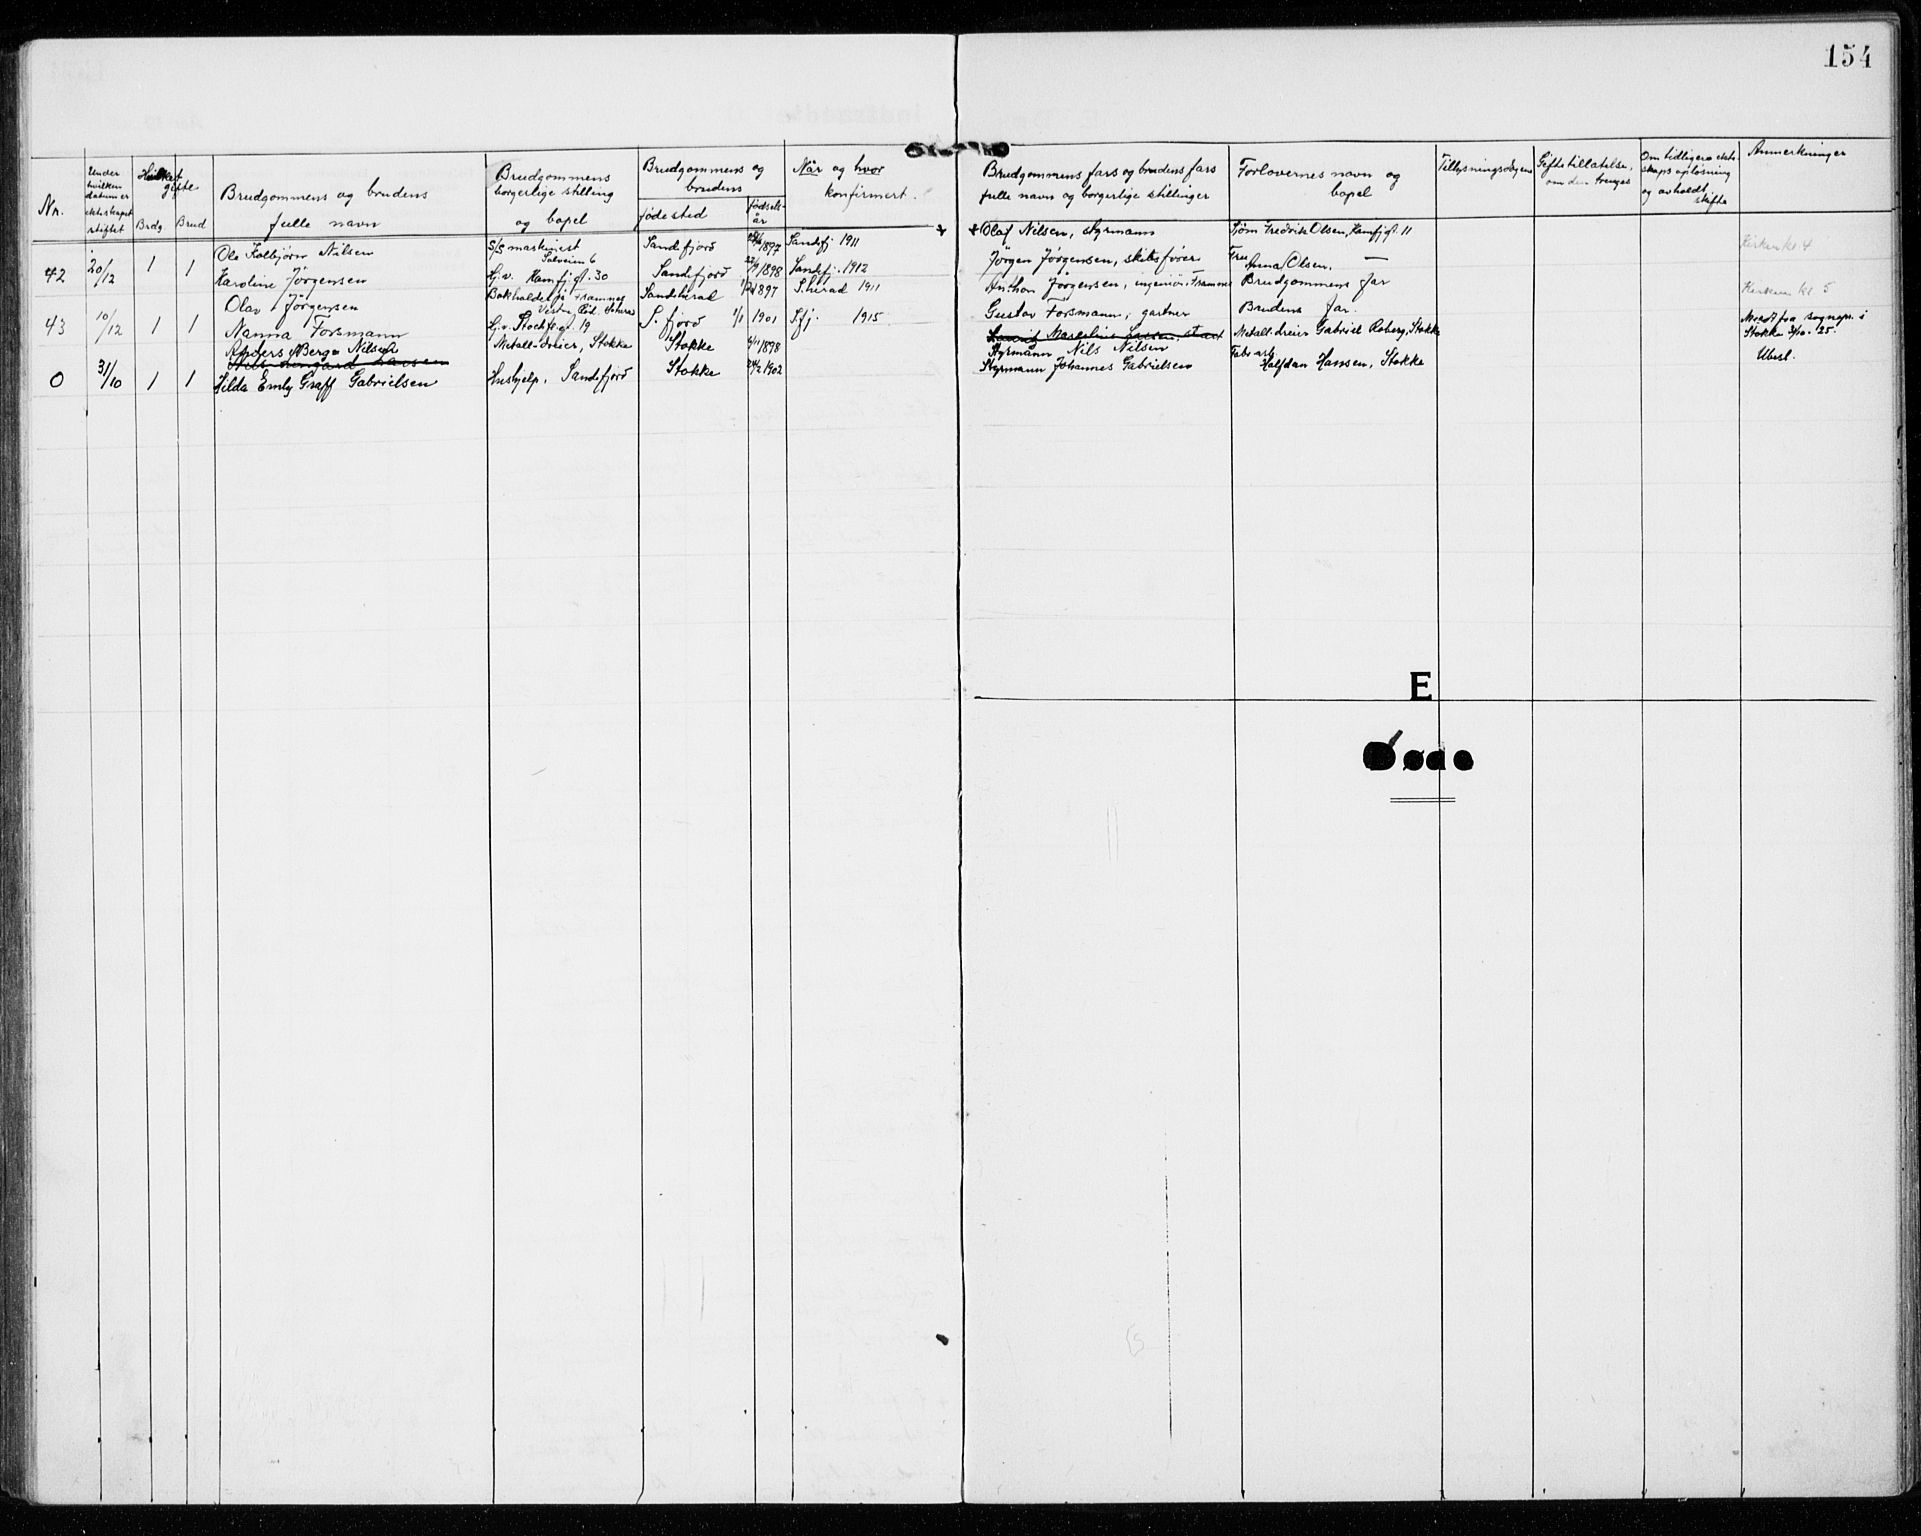 154
Nr.
Under hvilken datum er ekteskapet stiftet
Hvilket gifte
Brdg. Brud
Brudgommens og brudens fulle navn
Brudgommens borgerlige stilling og bopel
Brudgommens og brudens
fødested
fødsels-år
Når og hvor konfirmert.
Brudgommens fars og brudens fars fulle navn og borgerlige stillinger
Forlovernes navn og bopel
Tillysningsdagene
Giftetillatelse, om den trenges
Om tidligere ekteskaps opløsning og avholdt skifte
Anmerkninger
42 20/12 1 1
Ole Kolbjørn Nilsen S/S maskinist Solveien 6 Sandefjord 1897 Sandefj. 1911 Olaf Nilsen, styrmann Fredrik Olsen, Hamfj.gt. 11 Kirken kl 4
Karoline Jörgensen Hj.v. Hamfj.gt. 30 Sandefjord 1898 Sandefj. 1912 Jörgen Jörgensen, skibsfører Fru Anna Olsen. —
43 10/12 1 1
Olav Jörgensen Bokholder på Framnes Sandeherad 1897 S.herad 1911 Anthon Jörgensen, ingeniör, Framnes Brudgommens far Kirken kl 5
Nanna Forsmann Hj.v. Stockfl.gt. 19 S. fjord 1/1 1901 S.fj. 1915 Gustav Forsmann, gartner Brudens far.
0 31/10 1 1
Anders Berge Nilsen Metall-dreier, Stokke Stokke 1898 Styrmann Nils Nilsen Metall-dreier Gabriel Roberg, Stokke Meldt fra sognepr. i Stokke 3/10-25.
Hilda Emly Graff Gabrielsen Hushjelp, Sandefjord Stokke 1902 Styrmann Johannes Gabrielsen Fabr.arb. Halfdan Hansen, Stokke Utesl.
E
Døde